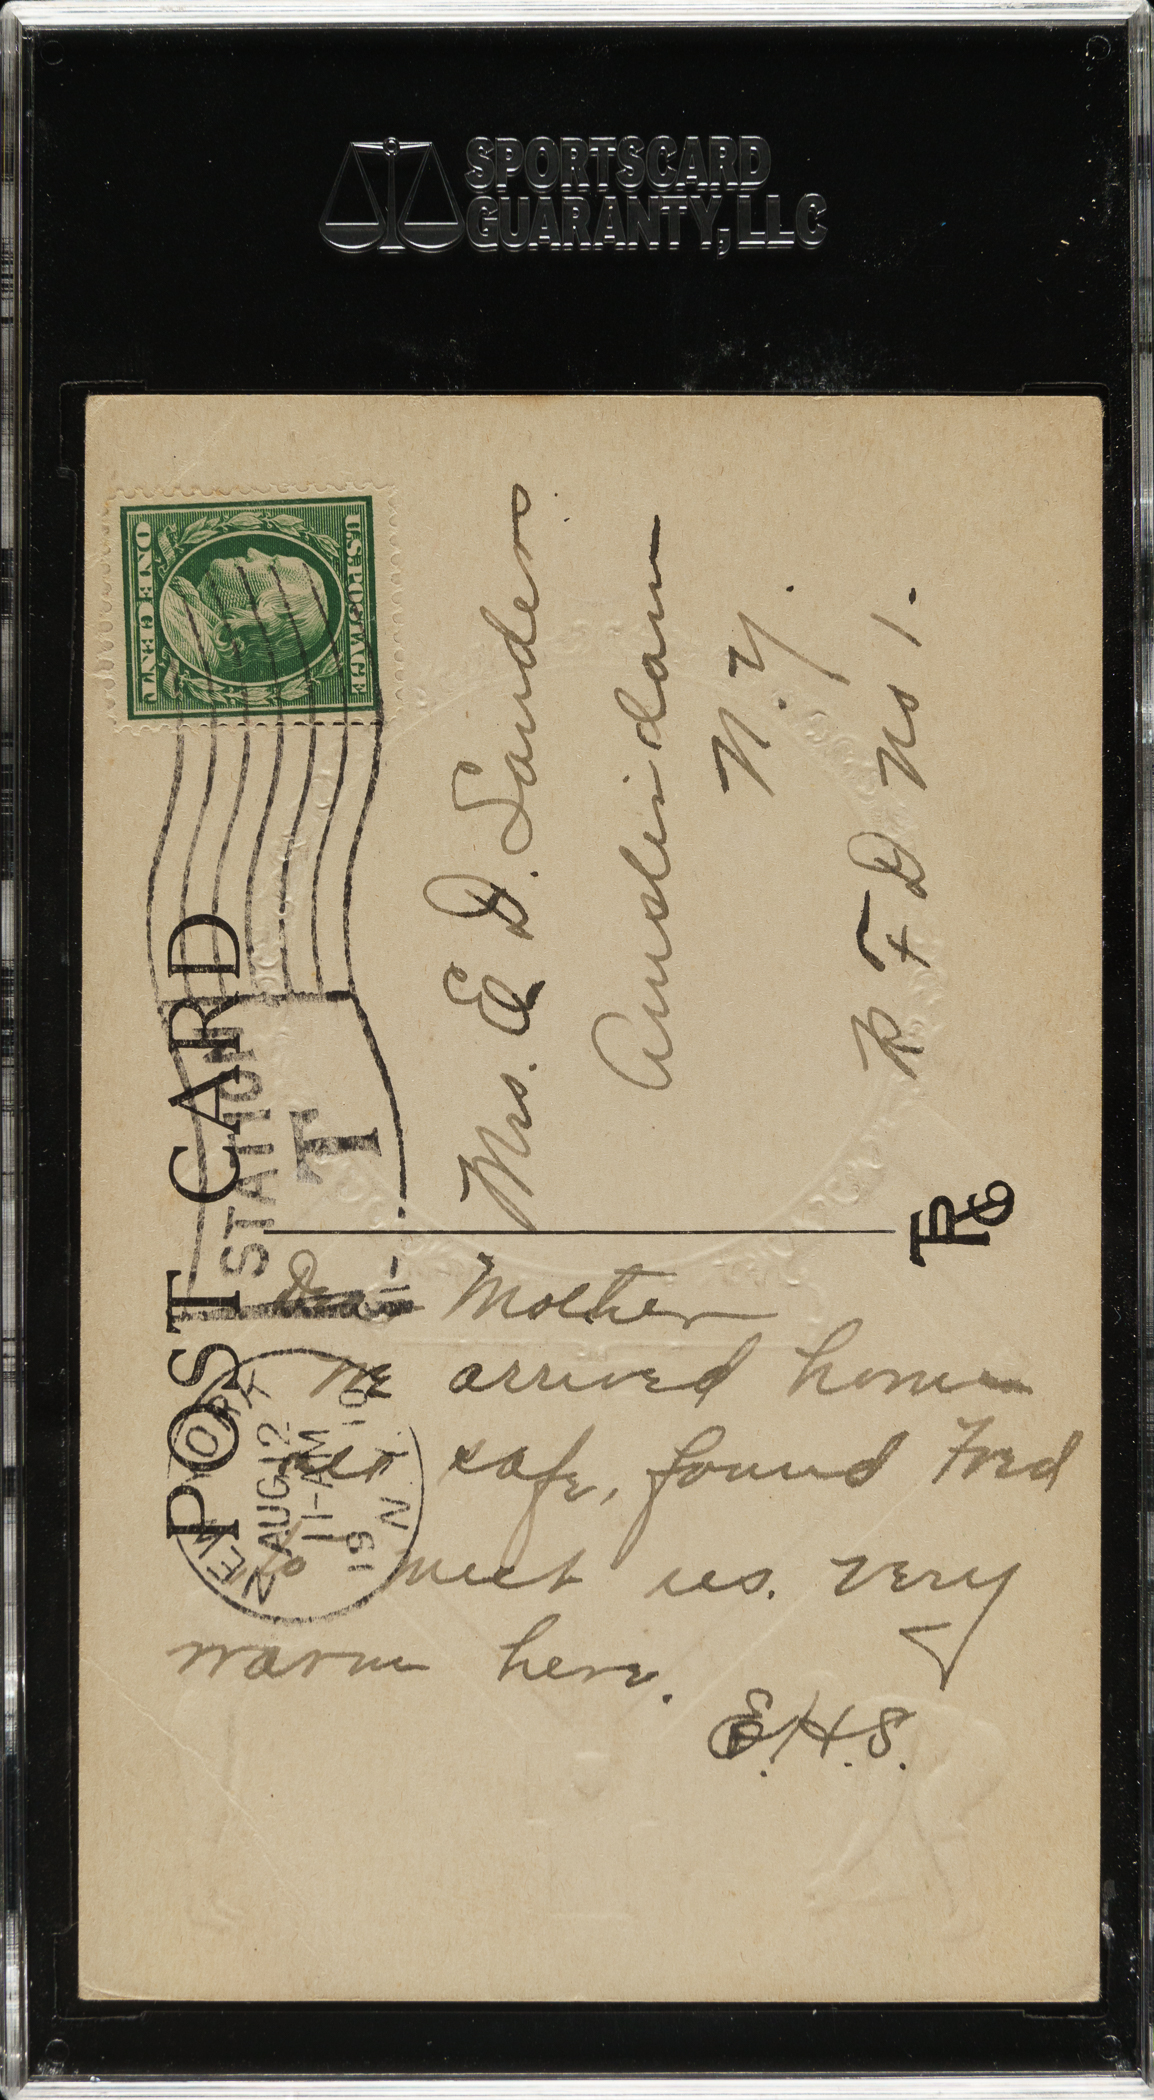 SPORTSCARD
GUARANTY, LLC
U.S. POSTAGE
ONE CENT
POST CARD
STATION
T
NEW YORK
AUG 12
11-AM
1910
N.Y.
Mrs. E D. Sanders
Amsterdam
N.Y.
R F D No 1.
Dear Mother
We arrived home
all safe, found Fred
to meet us. Very
warm here.
E.H.S.